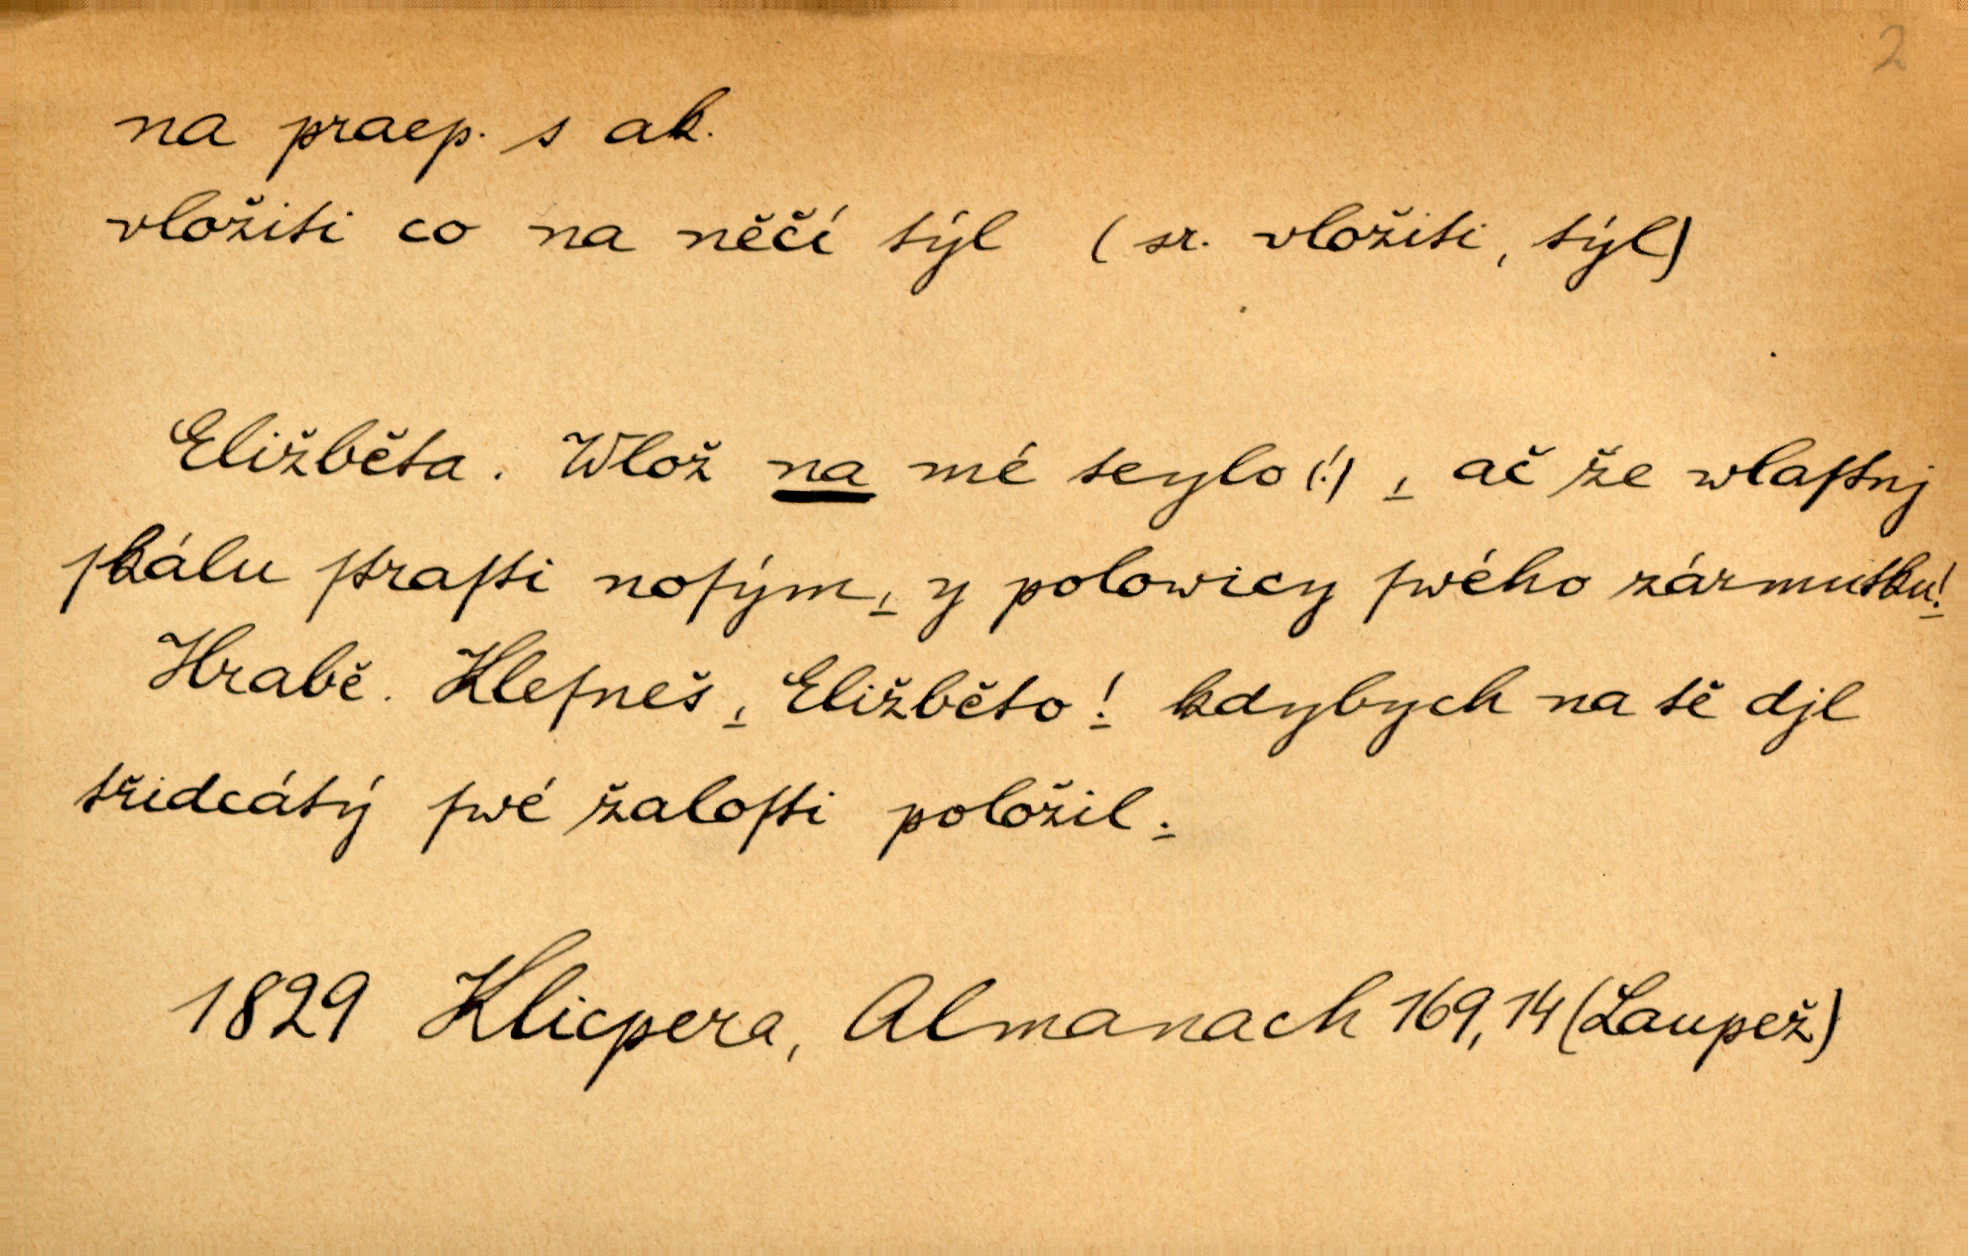 2
na praep. s ak.
vložiti co na něčí týl (sr. vložiti, týl)
Eližběta. Wlož na mé teylo (!), ač že wlaſtnj
ſkálu ſtraſti noſým, y polowicy ſwého zármutku!
Hrabě. Kleſneš, Eližběto! kdybych na tě djl
třidcátý ſwé žaloſti položil.
1829 Klicpera, Almanach 169, 14 (Laupež)